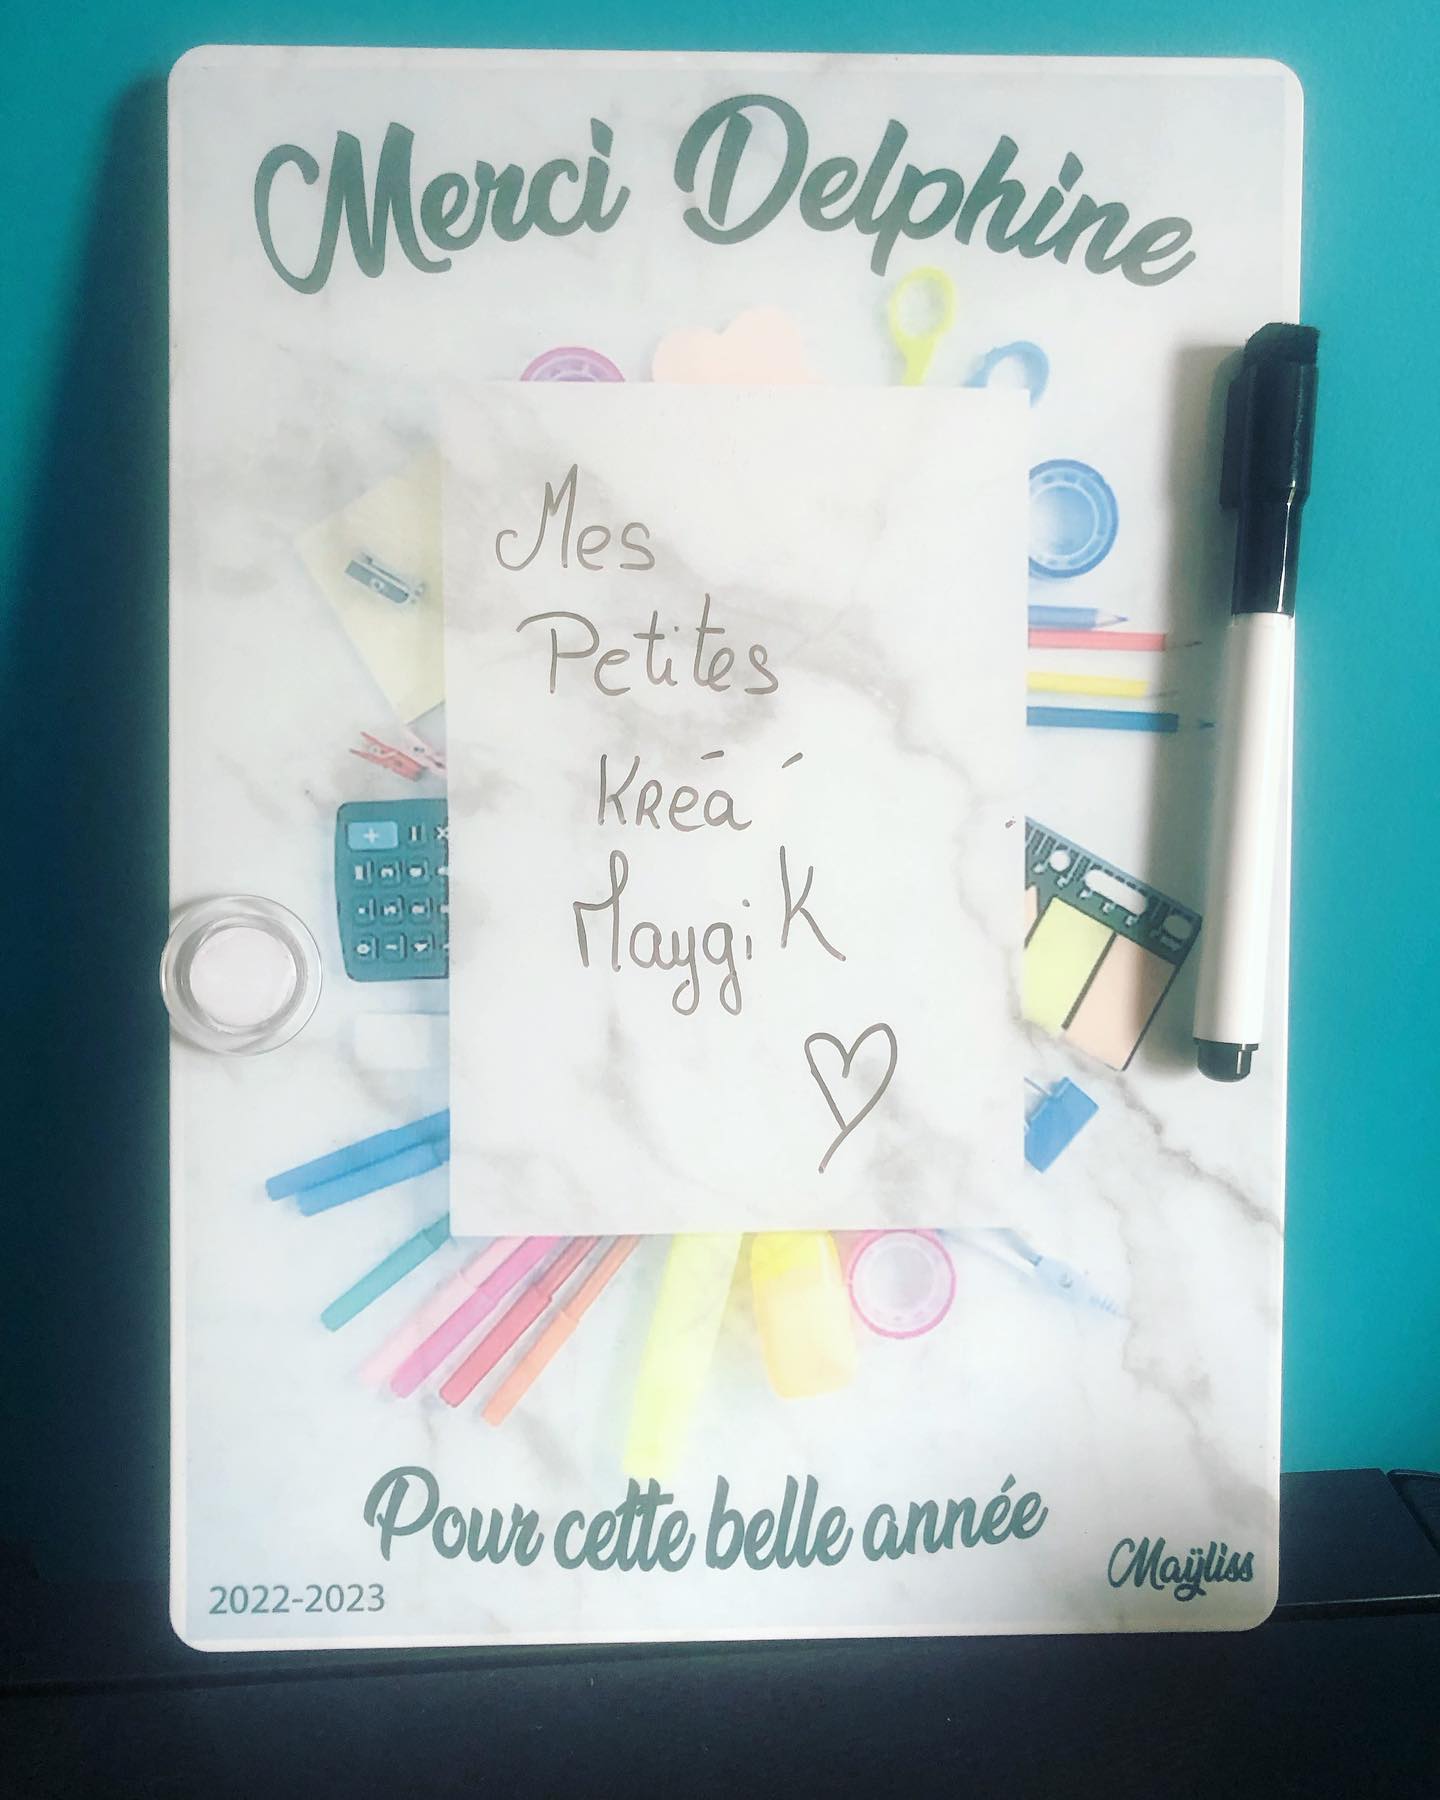 Merci Delphine
Mes
Petites
Kréá
MaygiK
Pour cette belle année
2022-2023
Maÿliss